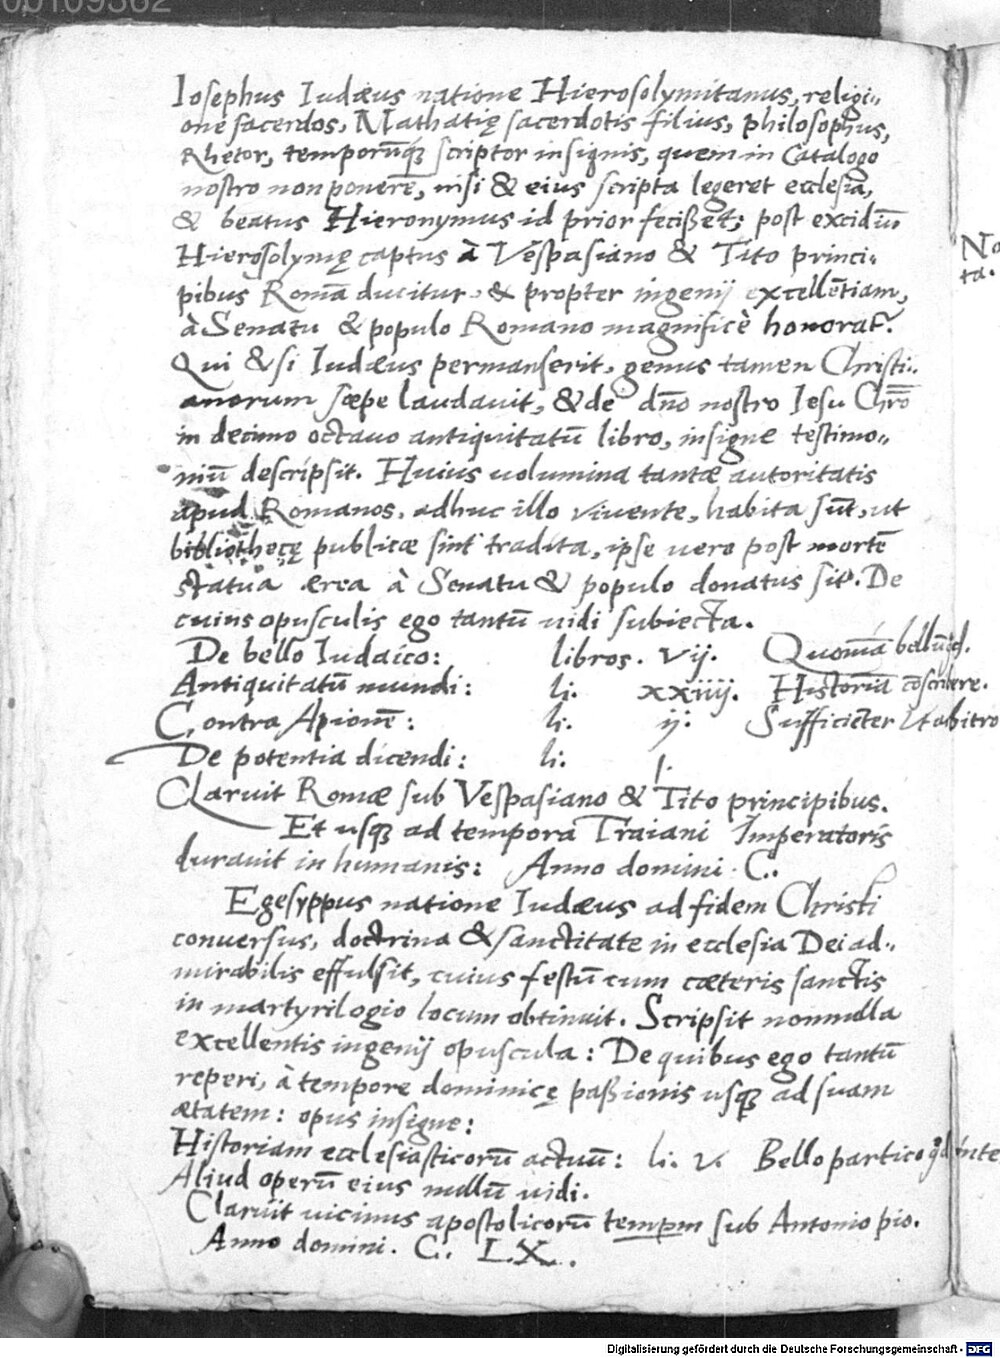 00109362
Iosephus Iudæus natione Hierosolymitanus, religi⸗
one sacerdos, Mathatię sacerdotis filius, philosophus,
Rhetor, temporūq₃ scriptor insignis, quem in Catalogo
nostro non ponerē, nisi & eius scripta legeret ecclesia,
& beatus Hieronymus id prior fecißet; post excidiū
Hierosolymę captus à Vespasiano & Tito princi⸗
pibus Romā ducitur, & propter ingenij excellētiam,
à Senatu & populo Romano magnificè honorat̃.
Qui & si Iudæus permanserit, genus tamen Christi⸗
anorum sæpe laudavit, & de dño nostro Iesu Chr̃o
in decimo octauo antiquitatū libro, insigne testimo⸗
niū descripsit. Huius uolumina tantæ autoritatis
apud Romanos, adhuc illo vivente, habita sūt, ut
bibliothecę publicæ sint tradita, ipse uero post mortē
statua ærea à Senatu & populo donatus sit. De
cuius opusculis ego tantū uidi subiecta.
De bello Iudaico: libros. vij. Quoniā bellū
Antiquitatū mundi: li. xxiiij. Historiā cōscribere.
Contra Apionē: li. ij. Sufficiēter
De potentia dicendi: li. I.
Claruit Romæ sub Vespasiano & Tito principibus.
Et usq₃ ad tempora Traiani Imperatoris
durauit in humanis: Anno domini. C.
Egesyppus natione Iudæus ad fidem Christi
conuersus, doctrina & sanctitate in ecclesia Dei ad⸗
mirabilis effulsit, cuius festū cum cæteris sanctis
in martyrilogio locum obtinuit. Scripsit nonnulla
excellentis ingenij opuscula: De quibus ego tantū
reperi, à tempore dominicę paßionis usq₃ ad suam
ætatem: opus insigne:
Historiam ecclesiasticorū actuū: li. v. Bello partico
Aliud operū eius nullū uidi.
Claruit uicinus apostolicorū tempm sub Antonio pio.
Anno domini. C. LX.
No
ta.
Digitalisierung gefördert durch die Deutsche Forschungsgemeinschaft - DFG